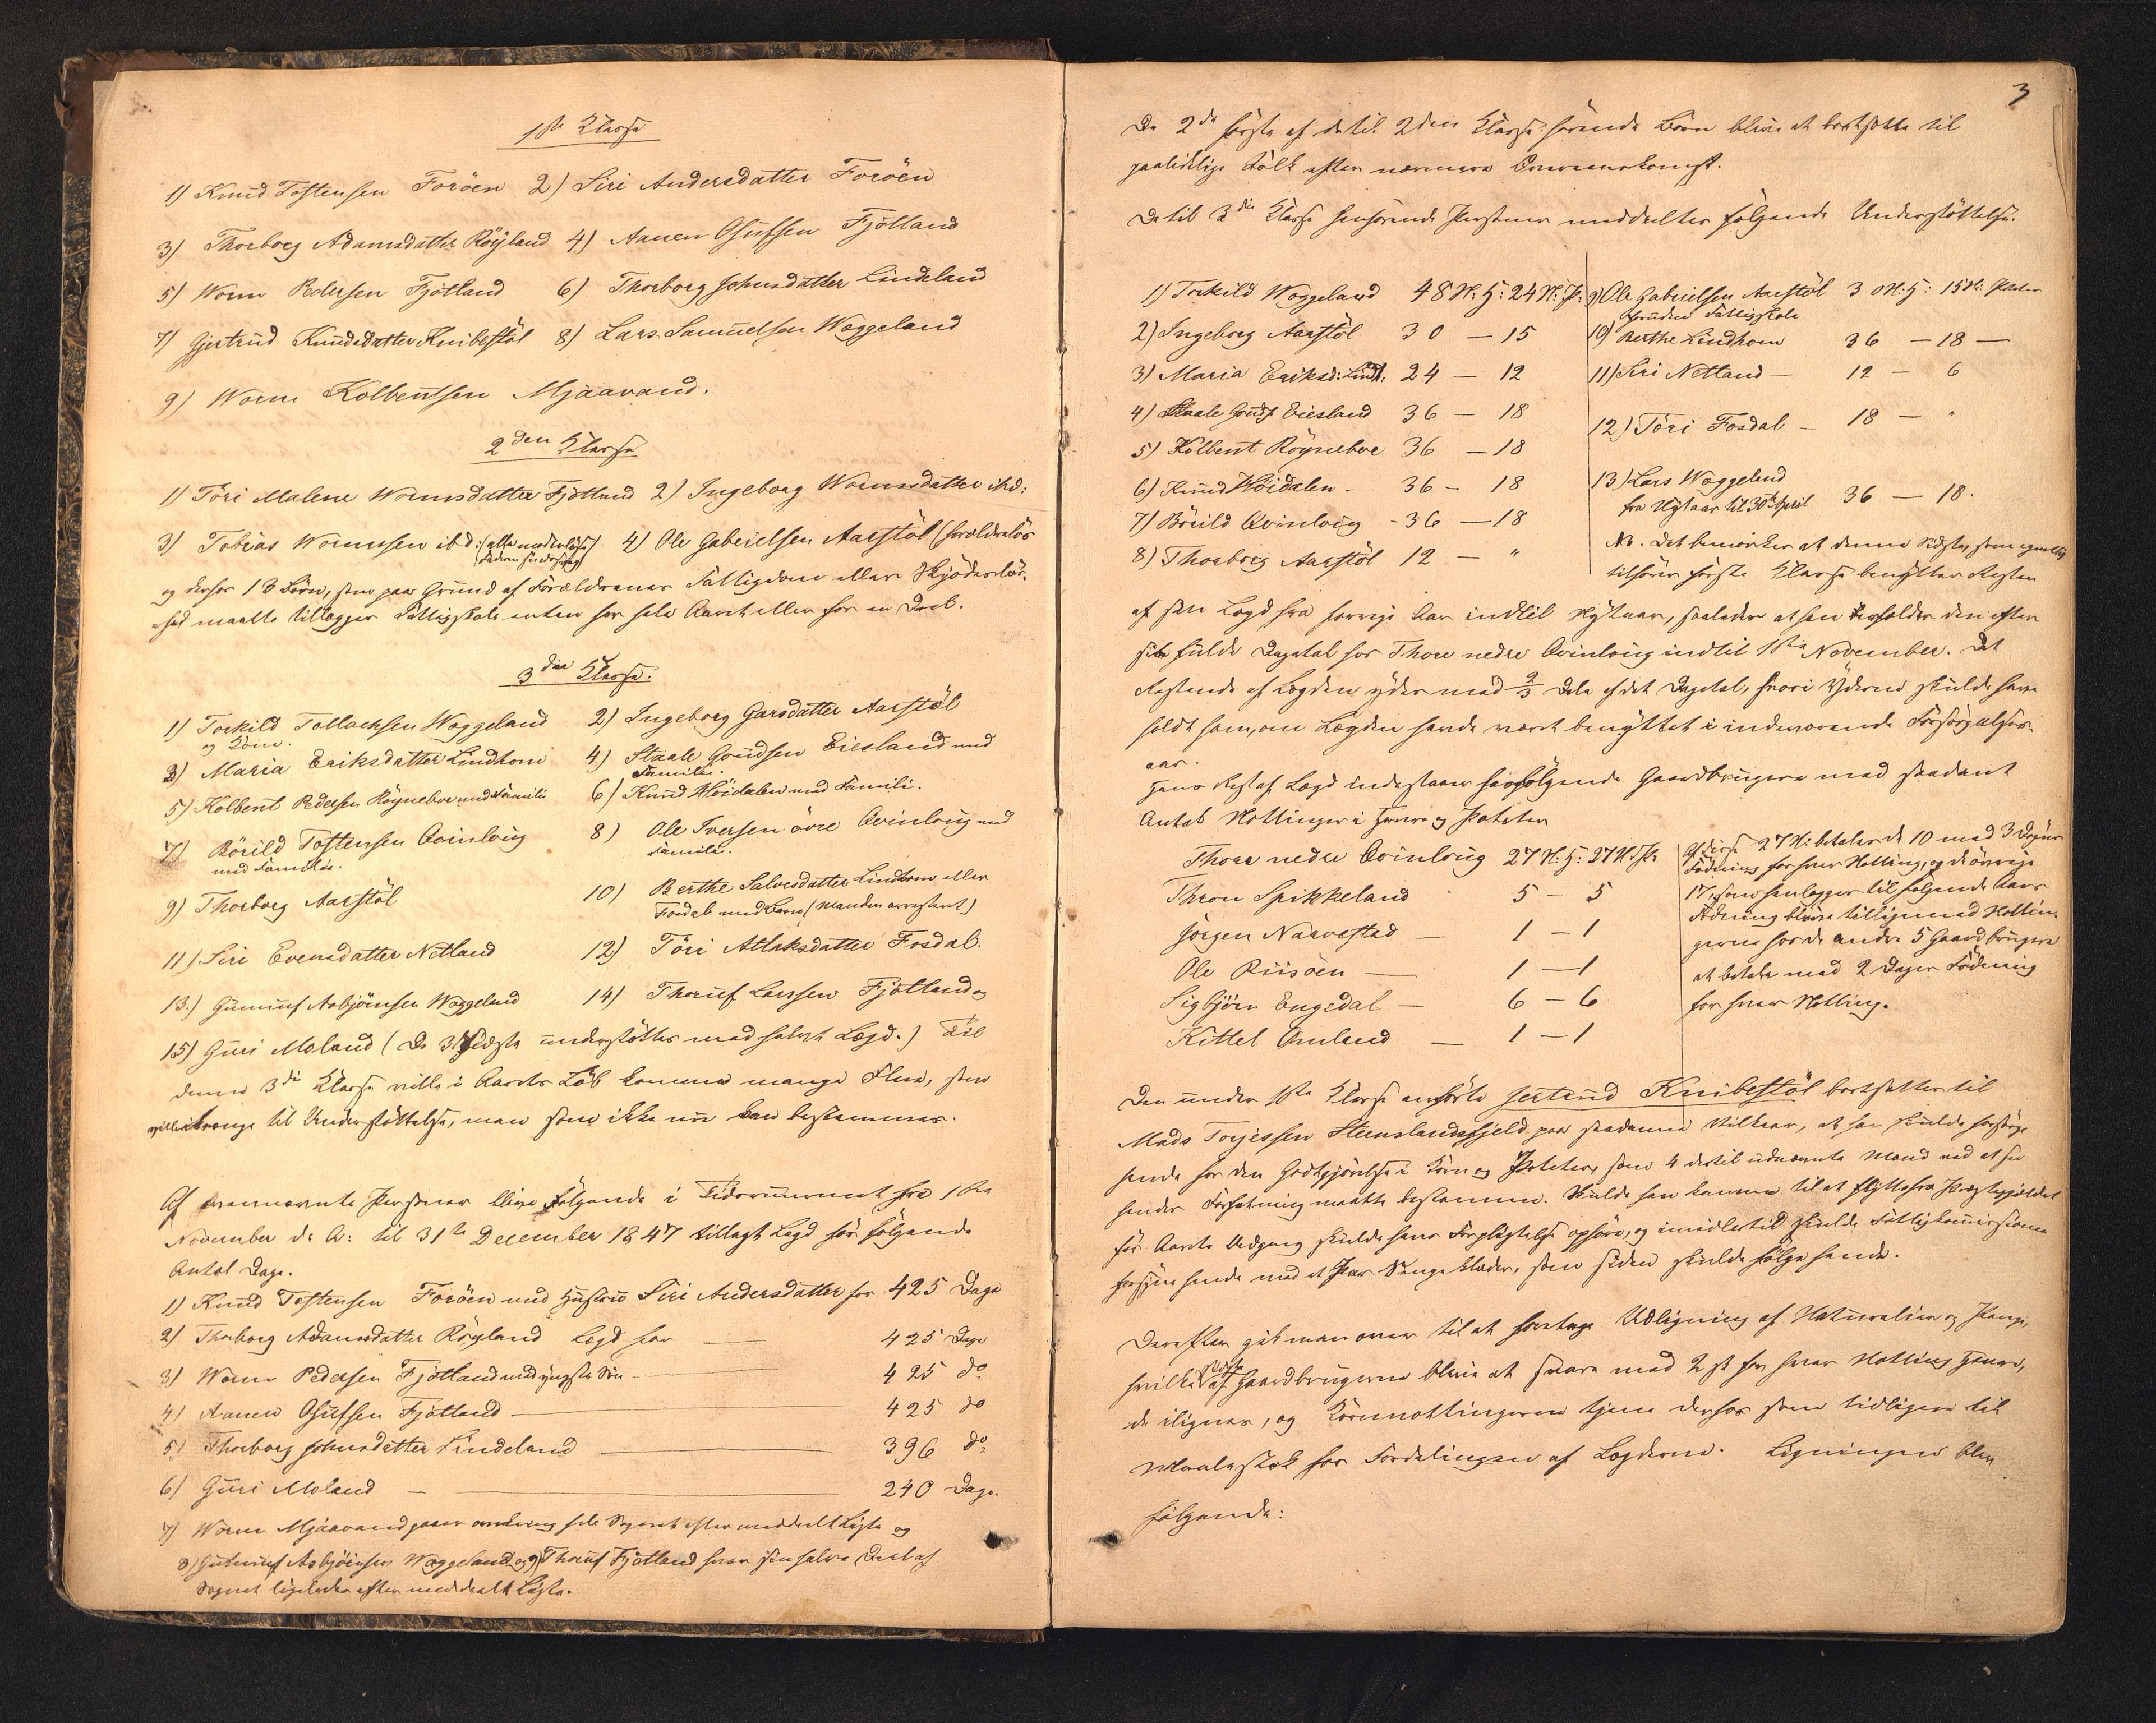 1ste Klasse
1) Knud Tostensen Foröen 2) Siri Andersdatter Foröen
3) Thorborg Adamsdatter Röyland 4) Aanen Osufsen Fjotland
5) Worm Pedersen Fjotland 6) Thorborg Johnsdatter Lindeland
7) Gjertrud Knudsdatter Knibestöl 8) Lars Samuelsen Waggeland
9) Worm Kolbentsen Mjaavand.
2den Klasse
1) Töri Malene Wormsdatter Fjotland 2) Ingeborg Wormsdatter ibd:
3) Tobias Wormsen ibd: (alle moderløse) 4) Ole Gabrielsen Aarstöl (forældreløs
og derfor 13 Börn, som paa Grund af Forældrenes Fattigdom eller Skjödesløs-
hed maatte tillægges Fattigskole enten for hele Aaret eller for en Deel.
3die Klasse.
1) Torkild Tollachsen Waggeland 2) Ingeborg Garsdatter Aarstöl
og Kone.
3) Maria Eriksdatter Lindhom 4) Staale Gundsen Eiesland med
Familie.
5) Kolbent Pedersen Röyneboe med Familie 6) Knud Höidalen med Familie.
7) Börild Tostensen Qvinloug 8) Ole Iversen övre Qvinloug med
med Familie. Familie.
9) Thorborg Aarstöl 10) Berthe Salvesdatter Lindhom eller
Fosdal med Børn (Manden arresteret)
11) Siri Evensdatter Netland 12) Töri Atlaksdatter Fosdal.
13.) Gunnuf Asbjörnsen Waggeland 14) Thoruf Larssen Fjotland og
15) Guri Moland (De 3 sidste understöttes med halvt Lægd.) Til
denne 3die Klasse ville i Aarets Löb komme mange Flere, som
ville trænge til Understöttelse, men som ikke nu kan bestemmes.
Af ovennævnte Personer blive følgende i Tidsrummet fra 1ste
November d: A: til 31te December 1847 tillagt Lægd for følgende
Antal Dage.
1) Knud Tostensen Foröen med Hustrue Siri Andersdatter for 425 Dage
2) Thorborg Adamsdatter Röyland Lægd for — 425 Dage
3) Worm Pedersen Fjotland med yngste Sön — 425 do
4) Aanen Osufsen Fjotland — 425 do
5) Thorborg Johnsdatter Lindeland — 396 do
6) Guri Moland — 240 Dage.
7) Worm Mjaavand gaaer omkring hele Sognet efter meddeelt Liste og
8) Gunnuf Asbjörnsen Waggeland og 9) Thoruf Fjotland hver sin halve Deel af
Sognet ligeledes efter meddeelt Liste.
3
De 2de første af de til 2den Klasse hørende Børn blive at bortsætte til
paalidelige Folk efter nærmere Overeenskomst.
De til 3die Klasse henhørende Personer meddeeltes følgende Understöttelse.
1) Torkild Waggeland 48 N: H: 24 N: P:
2) Ingeborg Aarstöl 30 — 15
3) Maria Eriksd: Lindh: 24 — 12
4) Staale Gunds: Eiesland 36 — 18
5) Kolbent Röyneboe 36 — 18
6) Knud Höidalen - 36 — 18
7) Börild Qvinloug - 36 — 18
8) Thorborg Aarstöl 12 — "
9) Ole Gabrielsen Aarstöl 30 N: H: 15 N: Poteter
foruden Fattigskole
10) Berthe Lindhom 36 — 18 —
11) Siri Netland — 12 — 6
12) Töri Fosdal — 18 — "
13) Lars Waggeland
fra Nytaar til 30te April 36 — 18.
NB. Det bemærkes at denne Sidste, som egentlig
tilhører første Klasse benytter Resten
af sin Lægd fra forrige Aar indtil Nytaar, saaledes at han beholder den efter
sin fulde Dagetal hos Thore nedre Qvinloug indtil 1ste November. Det
Resterende af Lægden yder med 2/3 Dele af det Dagetal, hvori Yderne skulde have
holdt ham, om Lægden havde været benyttet i indeværende Forsörgelses-
aar.
Hans Rest af Lægd indestaaer hos følgende Gaardbrugere med saadant
Antal Nottinger i Havre og Poteter
Thore nedre Qvinloug 27 N: H: 27 N: P:
Thron Spikkeland 5 — 5
Jörgen Naavestad — 1 — 1
Ole Riisöen — 1 — 1
Sigbjörn Engedal — 6 — 6
Kittel Omland — 1 — 1
Af disse 27 N: betales de 10 med 3 Dages
Födning for hver Notting, og de övrige
17, som henlægges til følgende Aars
Födning blive tilligemed Nottin-
gerne hos de andre 5 Gaardbrugere
at betale med 2 Dages Födning
for hver Notting.
Den under 1ste Klasse anførte Jertrud Knibestöl bortsættes til
Mads Torjessen Steenslandsfjeld paa saadanne Vilkaar, at han skulde forsörge
hende for den Godtgjörelse i Korn og Poteter, som 4 dertil udnævnte Mænd ved at see
hendes Forfatning maatte bestemme. Skulde han komme til at flytte fra Præstegjældet
før Aarets Udgang skulde hans Forpligtelse ophøre, og imidlertid skulde Fattigkommissionen
forsyne hende med et Par Sengeklæder, som siden skulde følge hende.
Derefter gik man over til at foretage Udligning af Naturalier og Penge,
hvilke sidste af Gaardbrugerne blive at svare med 2 sk for hver Notting Havre,
de ilignes, og Kornnottingerne tjene derhos som tidligere til
Maalestok for Fordelingen af Lægderne. Ligningen blev
følgende: